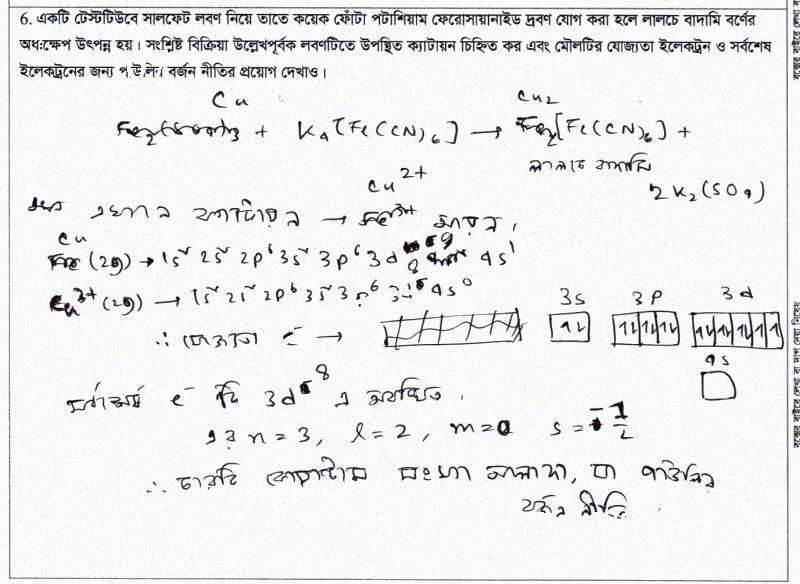 6. একটি টেস্টটিউবে সালফেট লবণ নিয়ে তাতে কয়েক ফোঁটা পটাশিয়াম ফেরোসায়ানাইড দ্রবণ যোগ করা হলে লালচে বাদামি বর্ণের
অধঃক্ষেপ উৎপন্ন হয়। সংশ্লিষ্ট বিক্রিয়া উল্লেখপূর্বক লবণটিতে উপস্থিত ক্যাটায়ন চিহ্নিত কর এবং মৌলটির যোজ্যতা ইলেকট্রন ও সর্বশেষ
ইলেকট্রনের জন্য পাউলের বর্জন নীতির প্রয়োগ দেখাও।
Cu Cu2
+ K4[Fe(CN)6] → [Fe(CN)6] +
লালচে বাদামি
2K2(SO4)
Cu2+
এখানে ক্যাটায়ন →
Cu
(29) → 1s² 2s² 2p6 3s² 3p6 3d9 4s1
(29) → 1s² 2s² 2p6 3s² 3p6 4s0
3s 3p 3d
∴ যোজ্যতা e- →
4s
সর্বশেষ e- টি 3d8 এ অবস্থিত।
এর n=3, l=2, m=0 s=-1/2
∴ চারটি কোয়ান্টাম সংখ্যা আলাদা, যা পাউলির
বর্জন নীতি।